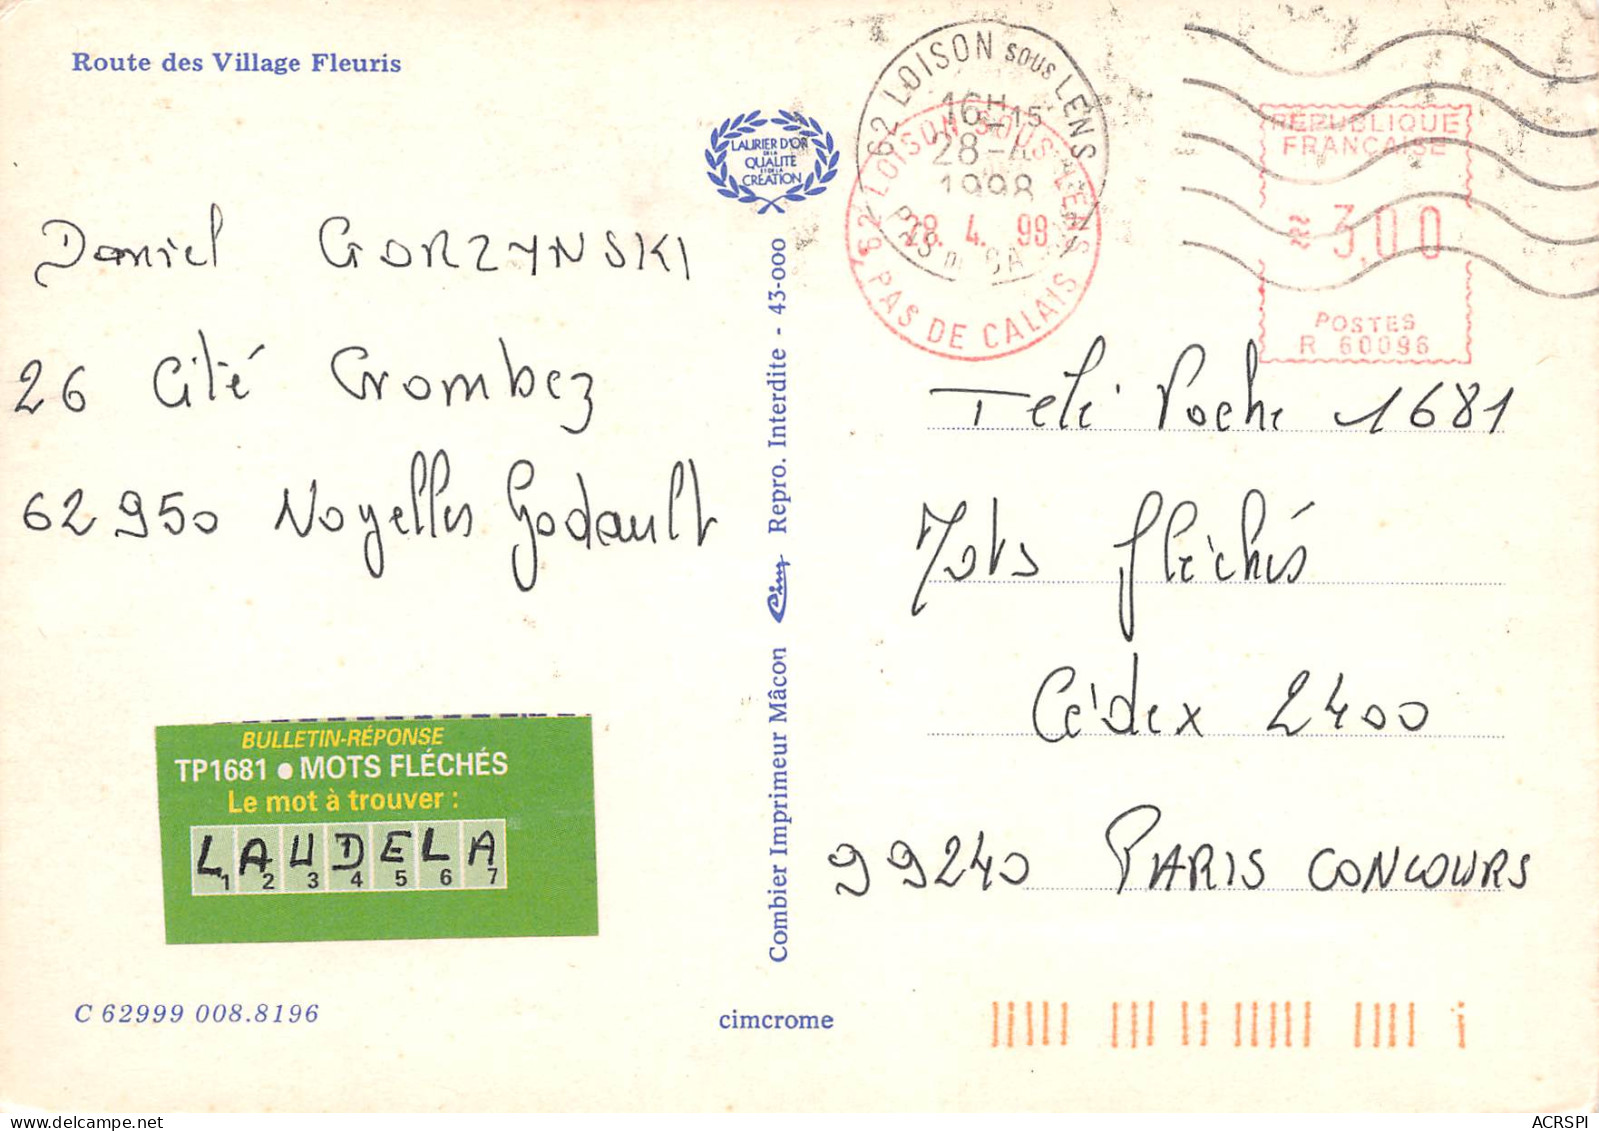 Route des Village Fleuris
LAURIER D'OR
DE LA
QUALITÉ
ET DE LA
CRÉATION
62 LOISON SOUS LENS
16H15
28-4
1998
62 LOISON SOUS LENS
28. 4. 98
PAS DE CALAIS
RÉPUBLIQUE
FRANÇAISE
3,00
POSTES
R 60096
Daniel GORZYNSKI
26 Cité Crombez
62950 Noyelles Godault
Télé Poche 1681
Mots fléchés
Cédex 2400
99240 PARIS CONCOURS
BULLETIN-RÉPONSE
TP1681 ● MOTS FLÉCHÉS
Le mot à trouver :
LAUDELA
1 2 3 4 5 6 7
Combier Imprimeur Mâcon Cim Repro. Interdite - 43-000
C 62999 008.8196
cimcrome
ACRSPI